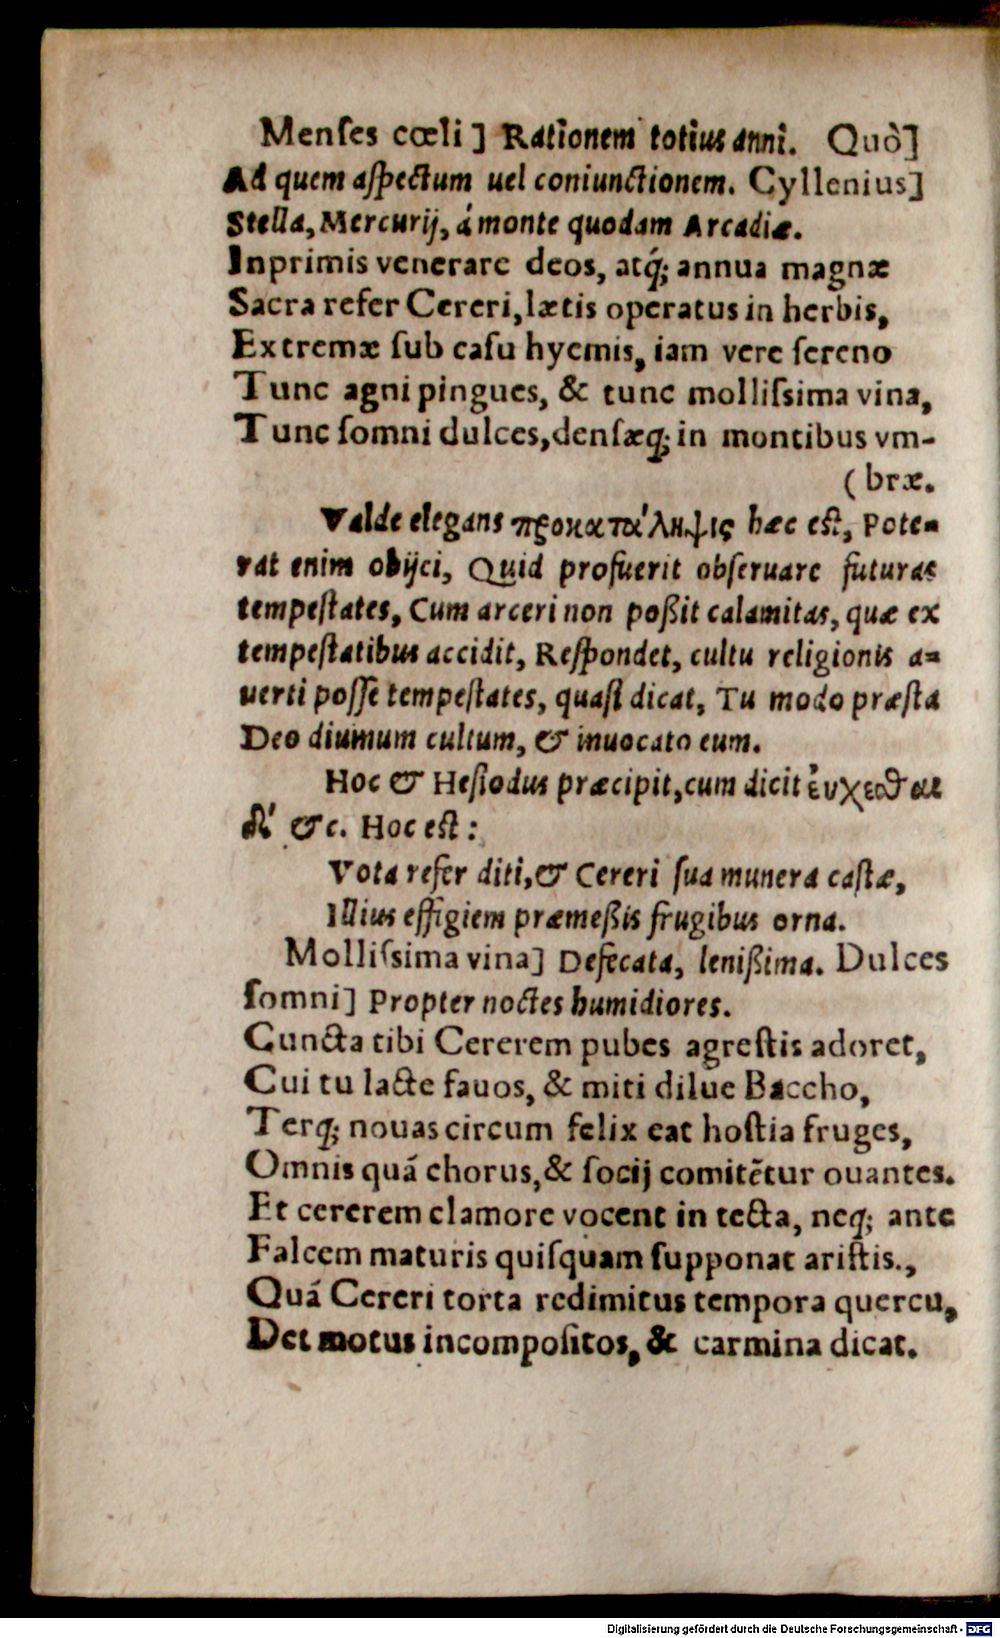 Menſes cœli] Rationem totius anni. Quò]
Ad quem aſpectum uel coniunctionem. Cyllenius]
Stella, Mercurij, á monte quodam Arcadiæ.
Inprimis venerare deos, atq́; annua magnæ
Sacra refer Cereri, lætis operatus in herbis,
Extremæ ſub caſu hyemis, iam vere ſereno
Tunc agni pingues, & tunc molliſsima vina,
Tunc ſomni dulces, denſæq; in montibus vm-
(bræ.
Valde elegans προκατάληψις hæc eſt, Pote-
rat enim obijci, Quid profuerit obſeruare futuras
tempeſtates, Cum arceri non poßit calamitas, quæ ex
tempeſtatibus accidit, Reſpondet, cultu religionis a-
uerti poſſe tempeſtates, quaſi dicat, Tu modo præſta
Deo diuinum cultum, & inuocato eum.
Hoc & Heſiodus præcipit, cum dicit ἐυχεσθαι
δ' &c. Hoc eſt:
Vota refer diti, & Cereri ſua munera caſtæ,
Illius effigiem præmeßis frugibus orna.
Molliſsima vina] Defecata, lenißima. Dulces
ſomni] Propter noctes humidiores.
Cuncta tibi Cererem pubes agreſtis adoret,
Cui tu lacte fauos, & miti dilue Baccho,
Terq; nouas circum felix eat hoſtia fruges,
Omnis quá chorus, & ſocij comitētur ouantes.
Et cererem clamore vocent in tecta, neq; ante
Falcem maturis quiſquam ſupponat ariſtis.,
Quá Cereri torta redimitus tempora quercu,
Det motus incompoſitos, & carmina dicat.
Digitalisierung gefördert durch die Deutsche Forschungsgemeinschaft - DFG